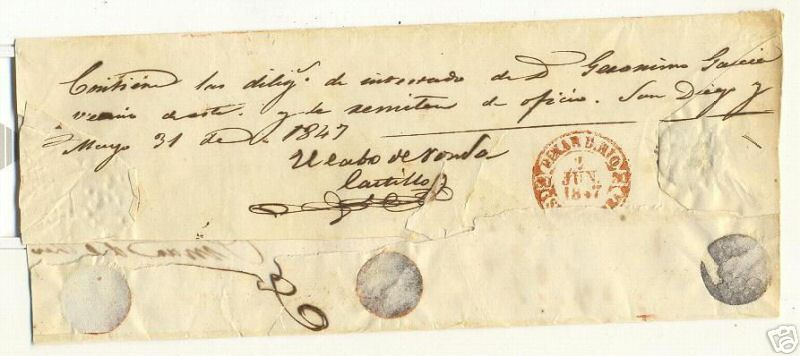 Contiene las dilig.s de intestado de D Geronimo Garcia
vecino de este. y se remiten de oficio. San Diego y
Mayo 31 de 1847
El cabo de Ronda
Castillo
PINAR D. RIO
2
JUN.
1847